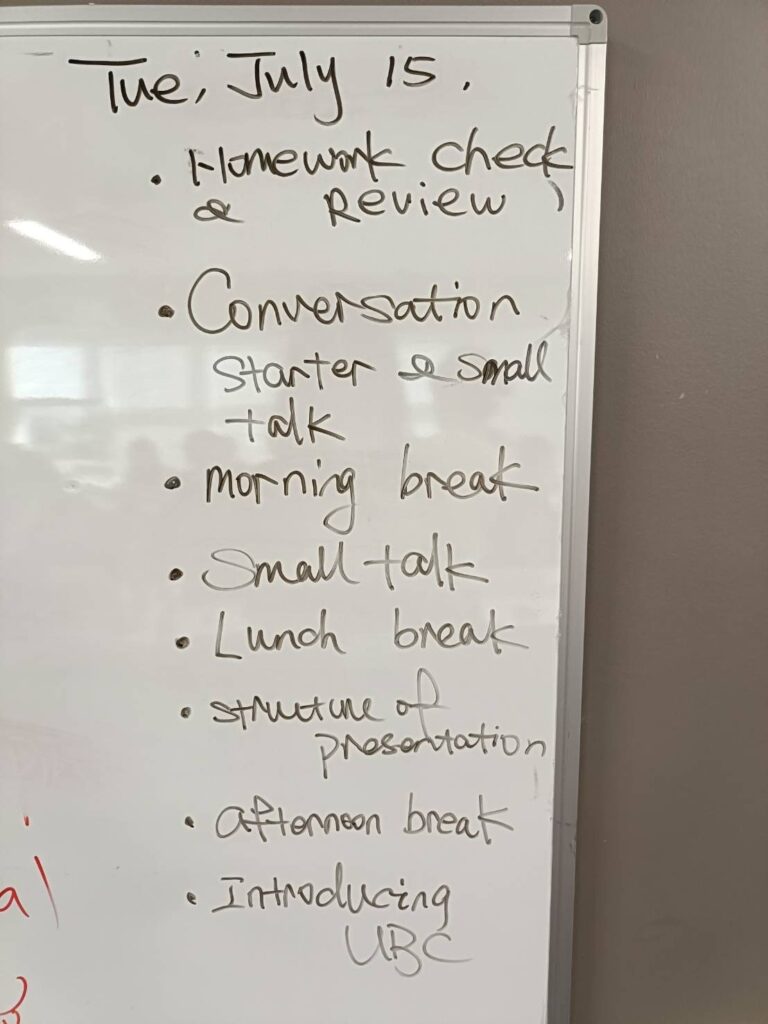 Tue, July 15.
• Homework check
& Review
• Conversation
Starter & small
talk
• morning break
• Small talk
• Lunch break
• structure of
presentation
• afternoon break
• Introducing
UBC
al